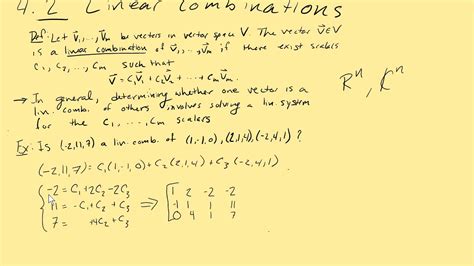 4.2 Linear Combinations
Def: Let v⃗₁,..., v⃗ₘ be vectors in vector space V. The vector v⃗∈V
is a linear combination of v⃗₁,..., v⃗ₘ if there exist scalars
c₁, c₂, ..., cₘ such that
v⃗ = c₁v⃗₁ + c₂v⃗₂ + ··· + cₘv⃗ₘ
→ In general, determining whether one vector is a
lin. comb. of others, involves solving a lin. system
for the c₁, ..., cₘ scalars
Rⁿ, ₵ⁿ
Ex: Is (-2,11,7) a lin. comb. of (1,-1,0), (2,1,4), (-2,4,1) ?
(-2,11,7) = c₁(1,-1,0) + c₂(2,1,4) + c₃(-2,4,1)
-2 = c₁ + 2c₂ - 2c₃
11 = -c₁ + c₂ + c₃
7 = +4c₂ + c₃
⇒
1 2 -2 -2
-1 1 1 11
0 4 1 7